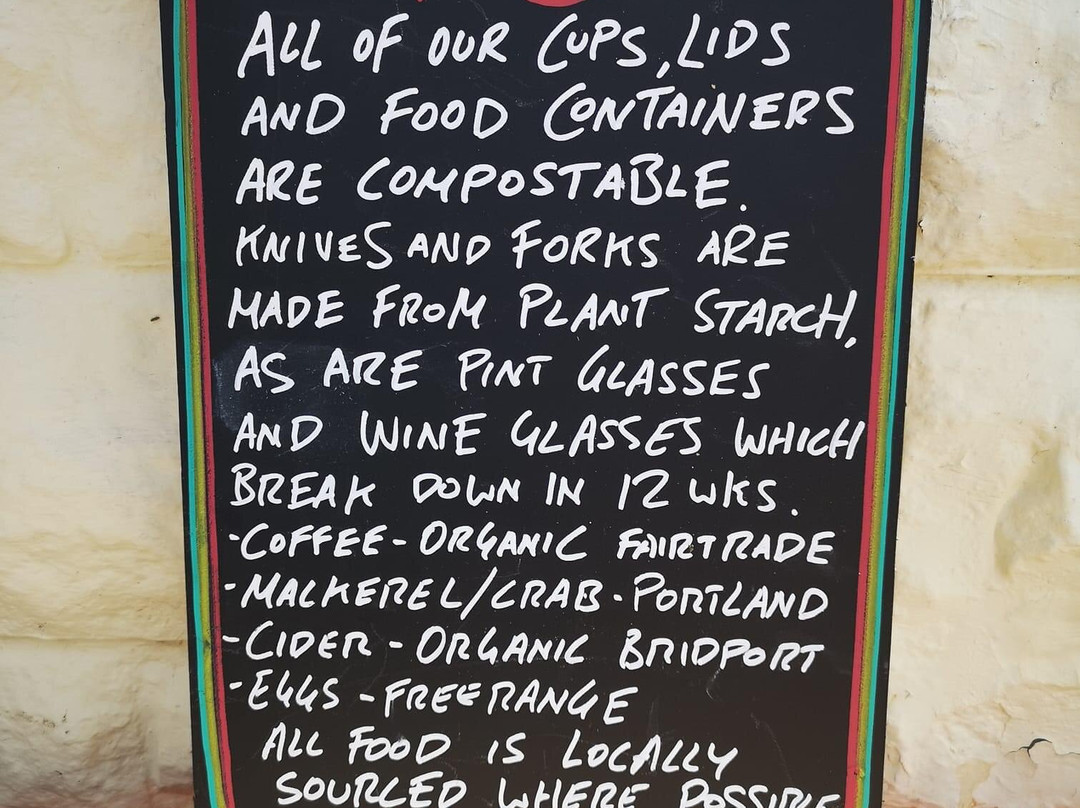 ALL OF OUR CUPS, LIDS
AND FOOD CONTAINERS
ARE COMPOSTABLE.
KNIVES AND FORKS ARE
MADE FROM PLANT STARCH,
AS ARE PINT GLASSES
AND WINE GLASSES WHICH
BREAK DOWN IN 12 WKS.
-COFFEE - ORGANIC FAIRTRADE
-MACKEREL/CRAB - PORTLAND
-CIDER - ORGANIC BRIDPORT
-EGGS - FREERANGE
ALL FOOD IS LOCALLY
SOURCED WHERE POSSIBLE